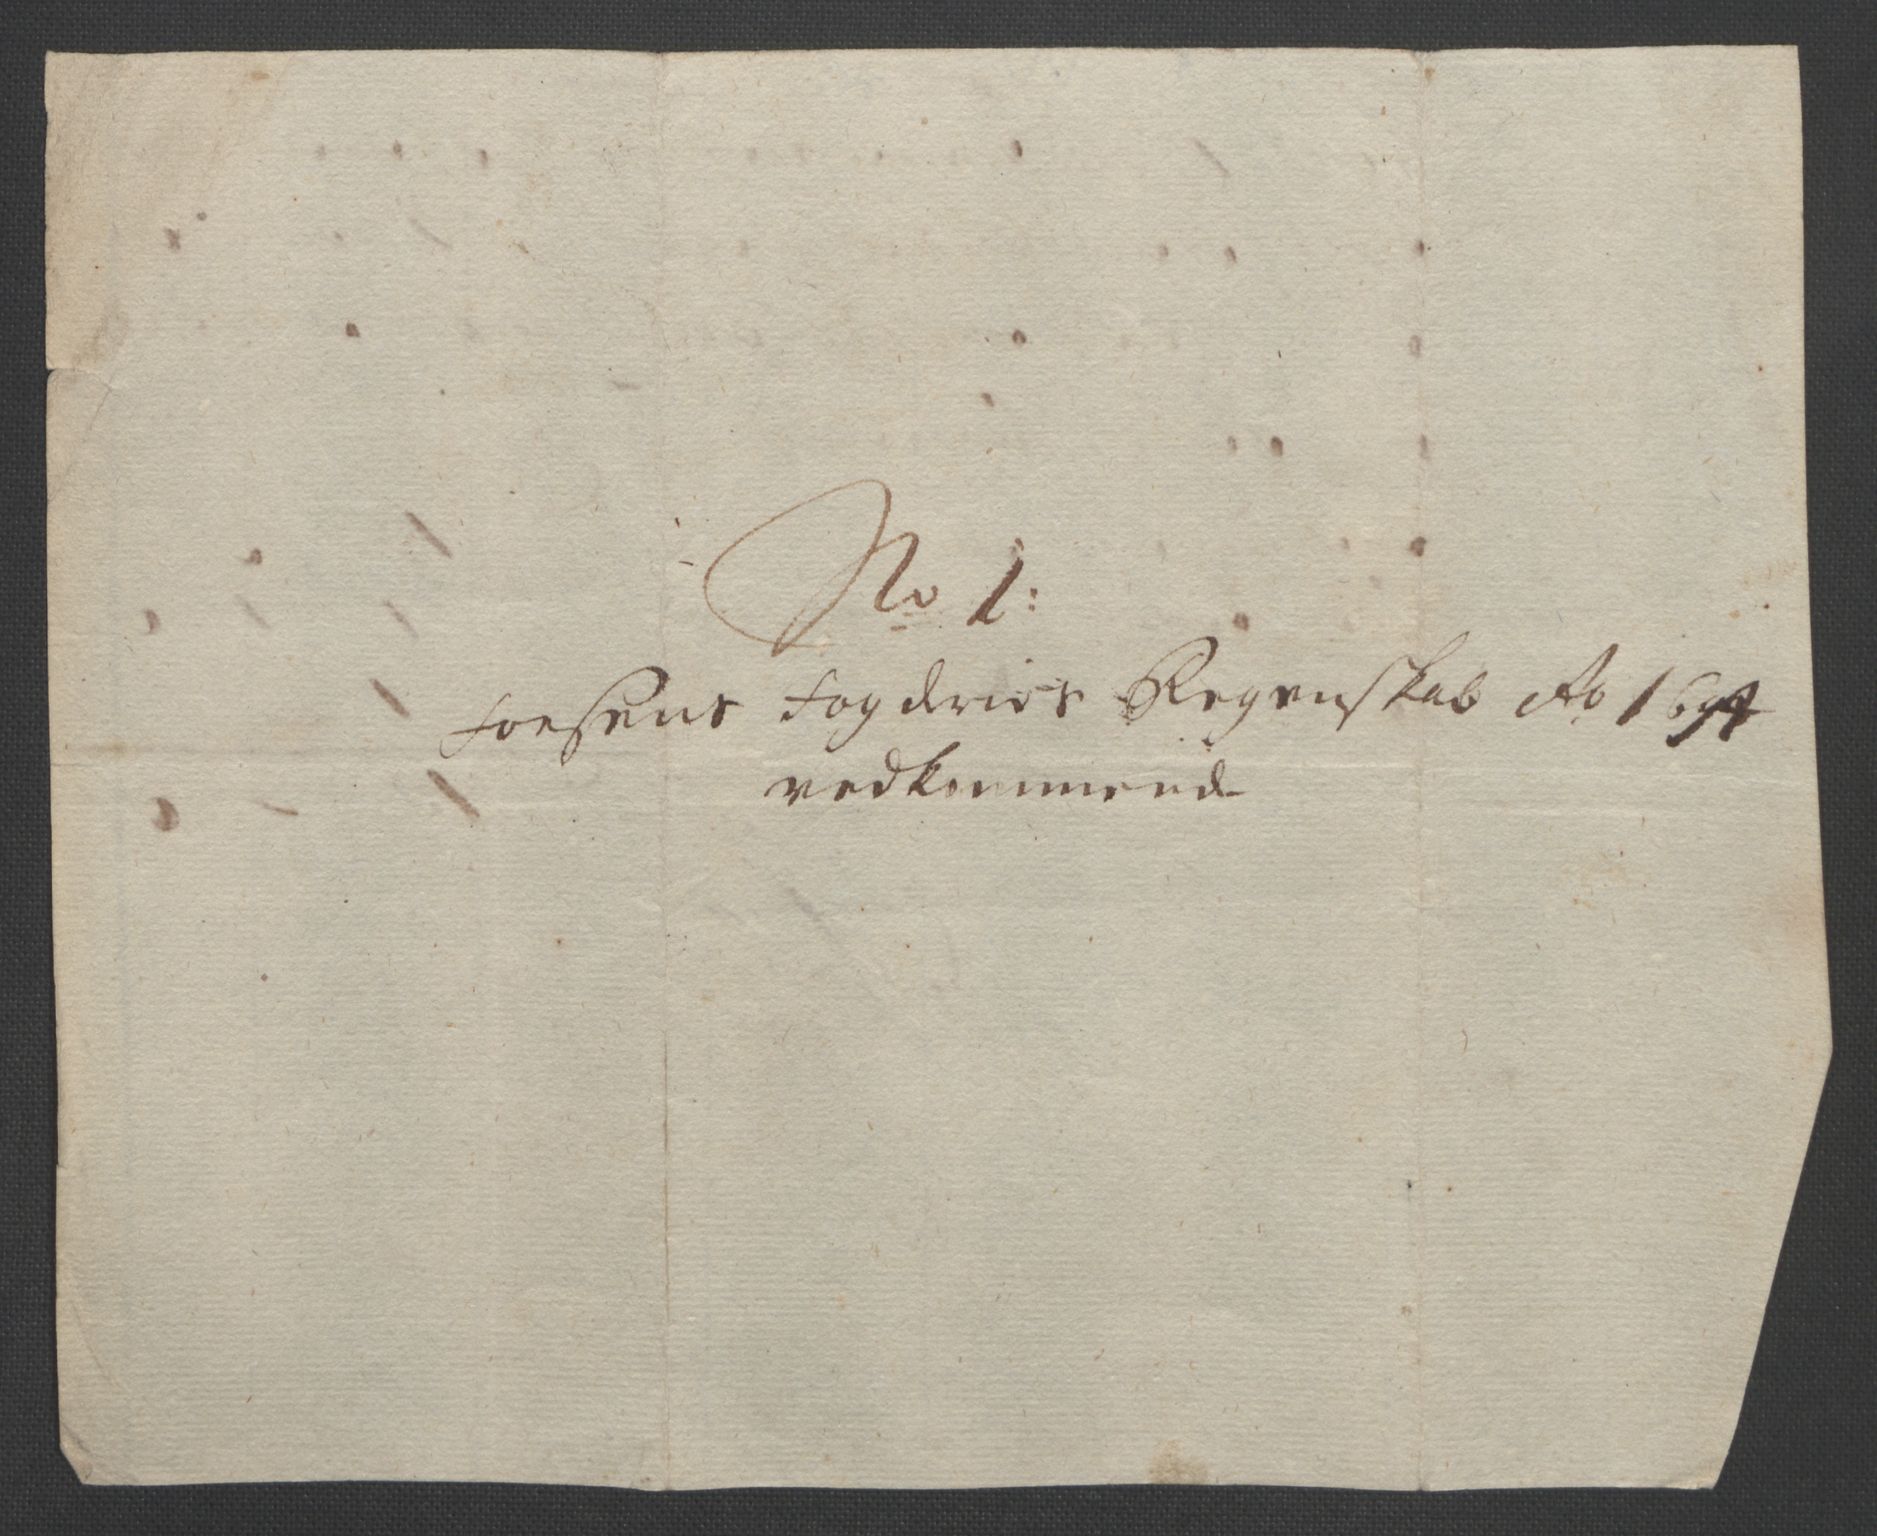 No 1:
Foesens Fogderies Regenskab Ao 1694
vedkommend